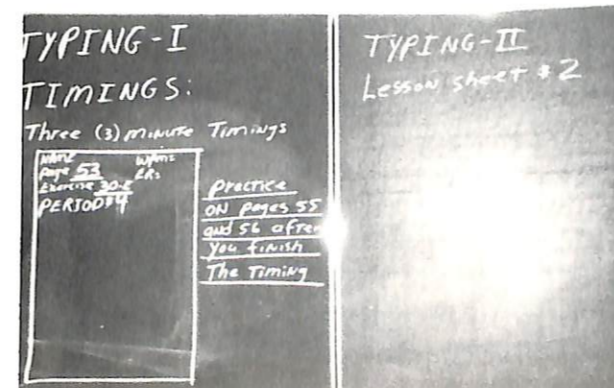 TYPING-I
TIMINGS:
Three (3) minute Timings
NAME WPM:
Page 53 ERs
Exercise 30-E
PERIOD#4
practice
ON pages 55
and 56 after
you finish
The Timing
TYPING-II
Lesson sheet #2